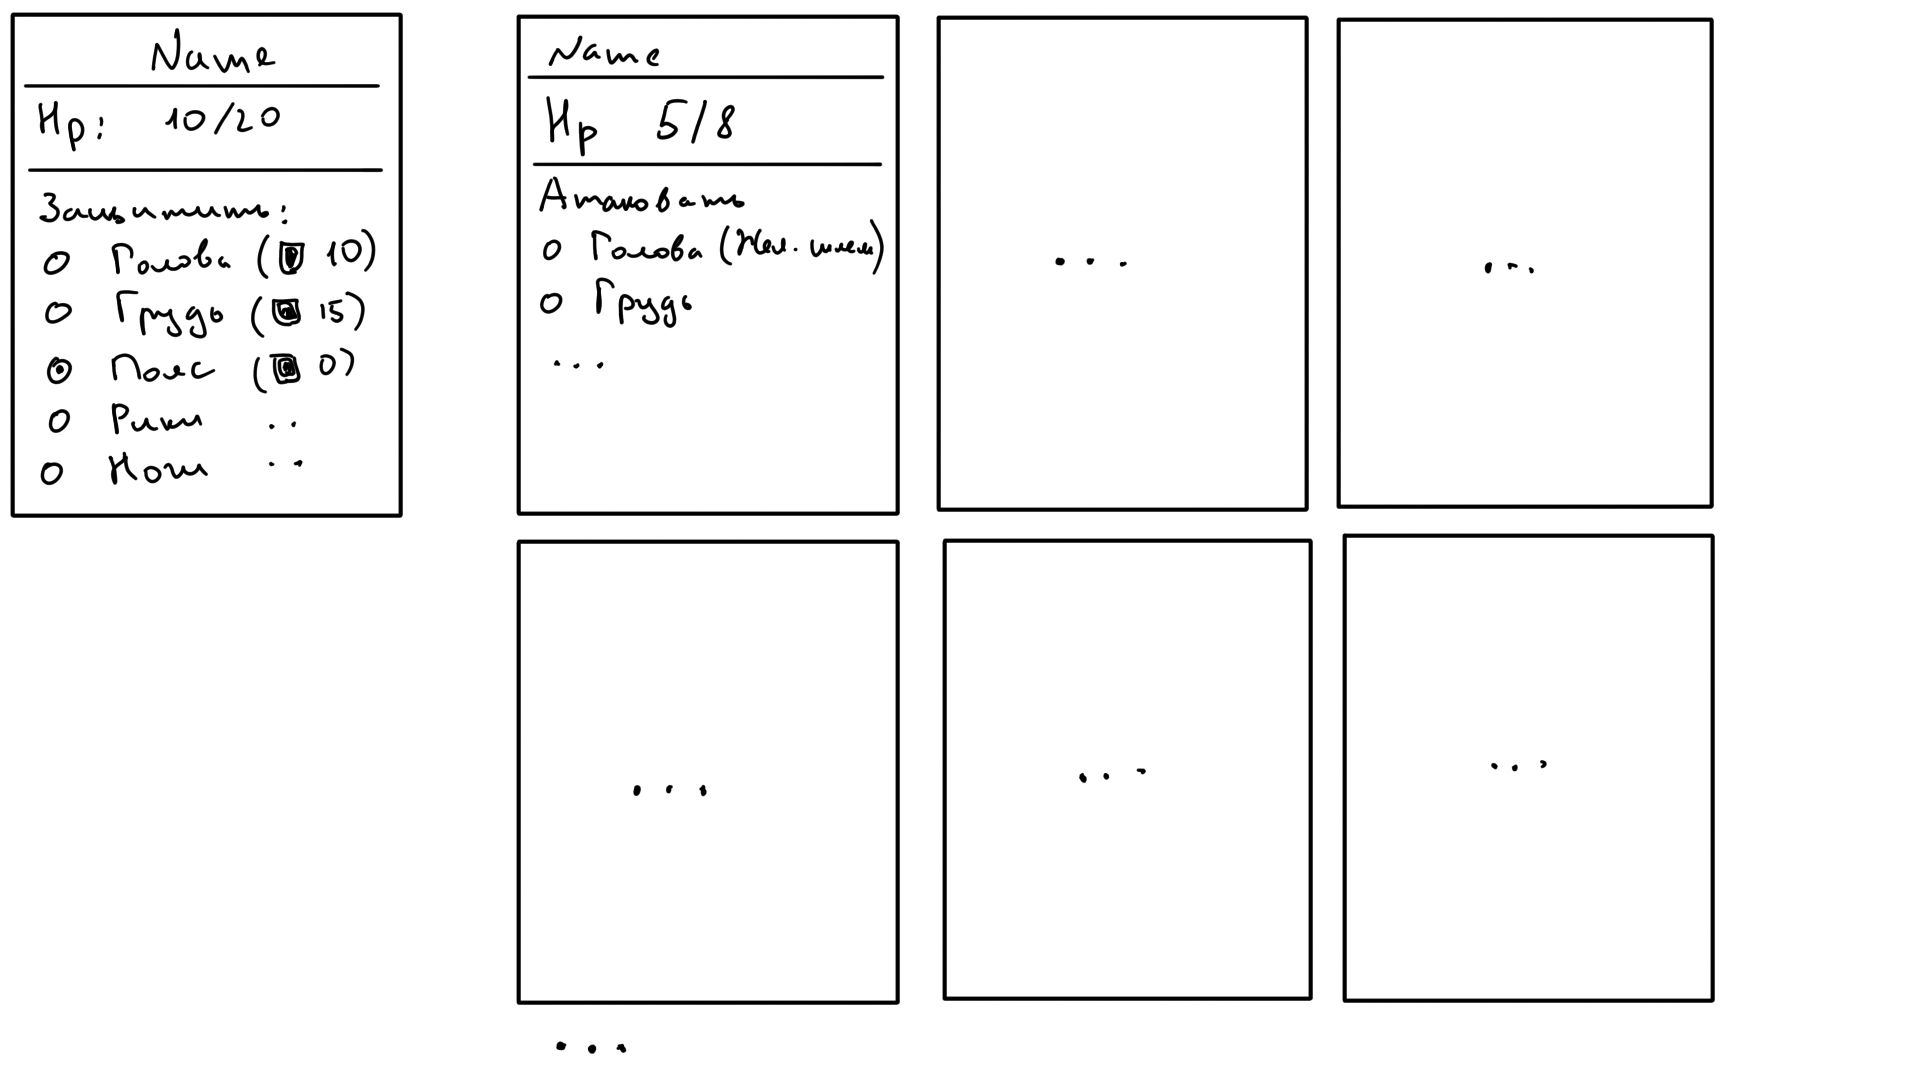 Name
Hp: 10/20
Защитить:
Голова (10)
Грудь (15)
Пояс (0)
Руки ..
Ноги ..
Name
Hp 5/8
Атаковать
Голова (Жел. шлем)
Грудь
...
...
...
...
...
...
...